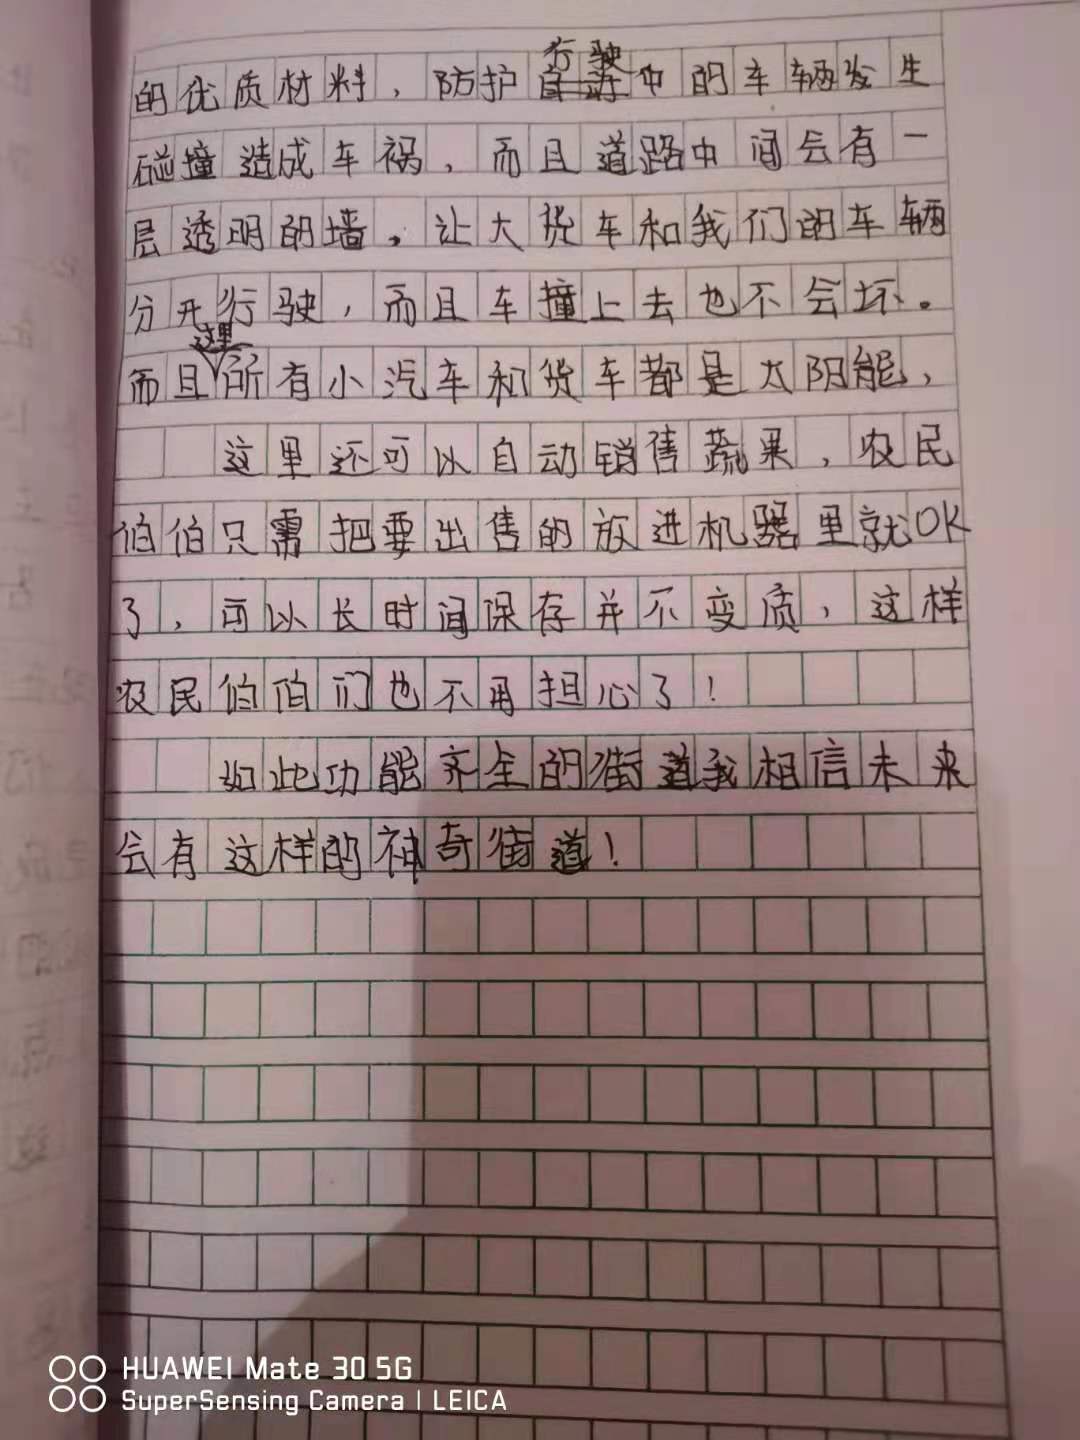 的优质材料，防护行驶中的车辆发生
碰撞造成车祸，而且道路中间会有一
层透明的墙，让大货车和我们的车辆
分开行驶，而且车撞上去也不会坏。
而且这里所有小汽车和货车都是太阳能，
这里还可以自动销售蔬果，农民
伯伯只需把要出售的放进机器里就OK
了，可以长时间保存并不变质，这样
农民伯伯们也不用担心了！
如此功能齐全的街道我相信未来
会有这样的神奇街道！
HUAWEI Mate 30 5G
SuperSensing Camera | LEICA